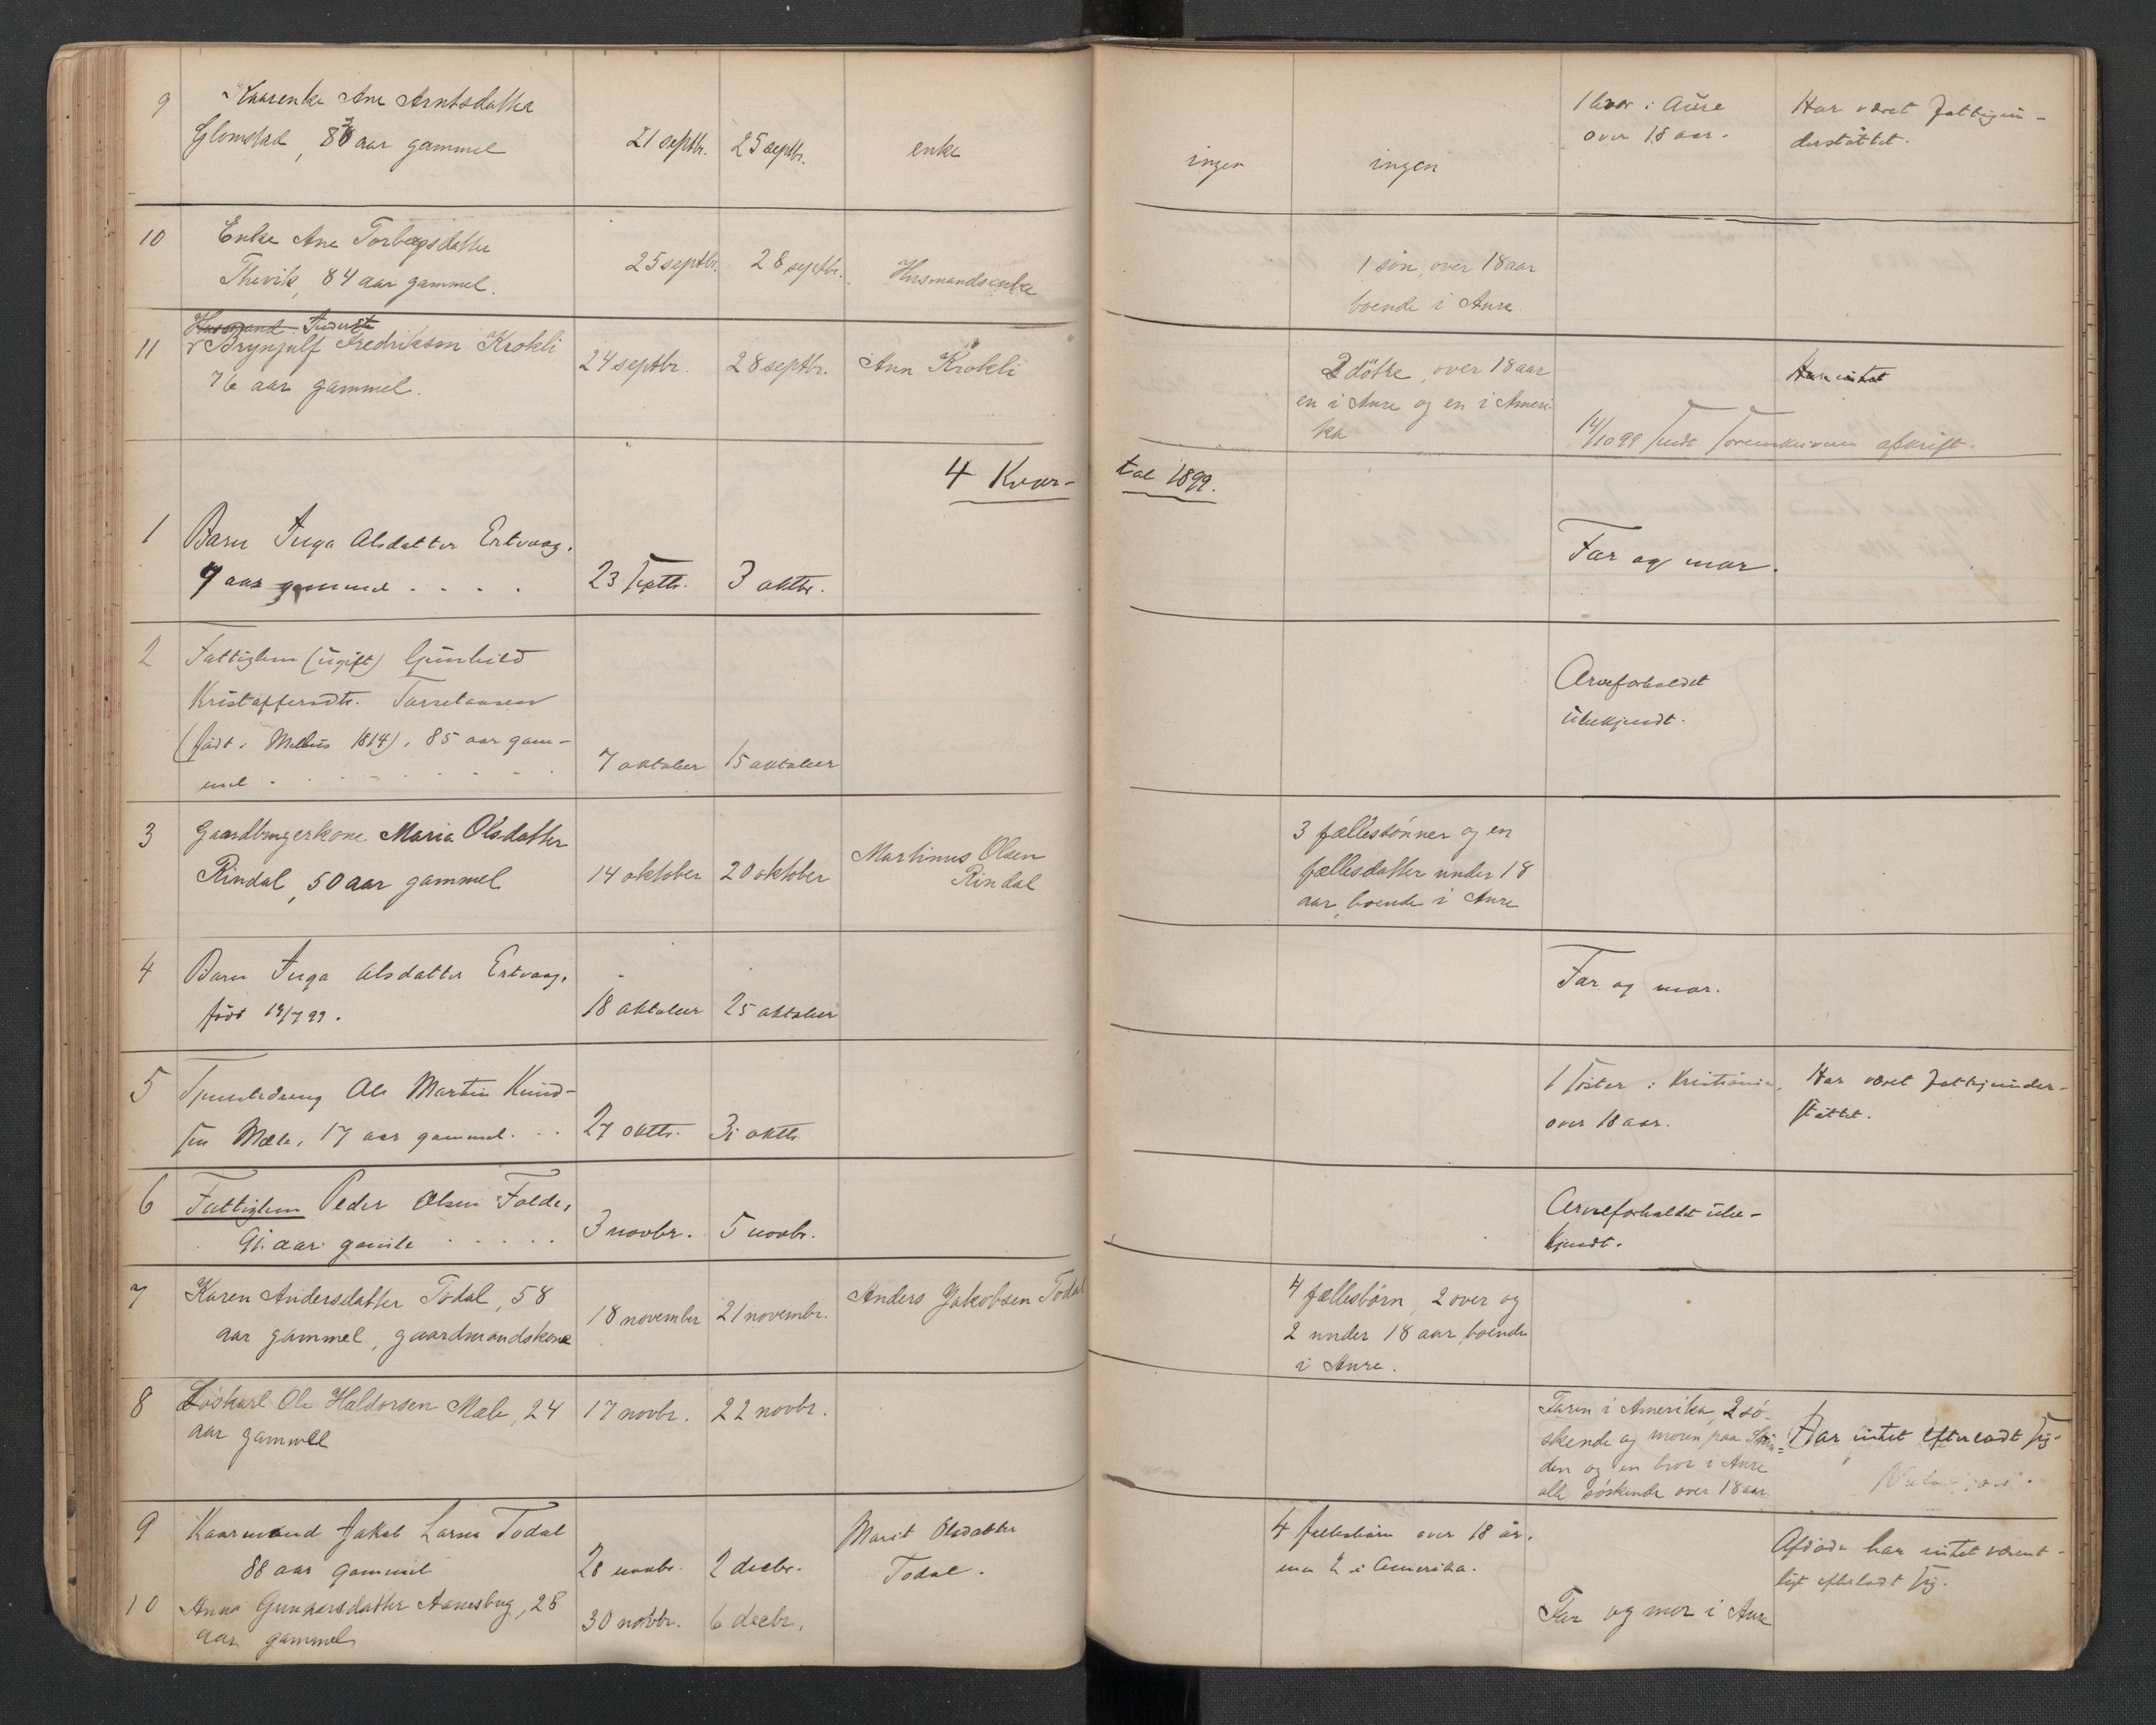 9 Kaarenke Ane Arntsdatter
Glomstad, 87 aar gammel
21 septbr. 25 septbr. enke
ingen ingen
1 bror i Aure
over 18 aar.
Har været fattigun-
derstøttet.
10 Enke Ane Torbergsdatter
Thevik, 84 aar gammel.
25 septbr. 28 septbr. Husmandsenke
1 søn, over 18 aar
boende i Aure
Husmand Inderste
11 Brynjulf Fredriksen Krokli
76 aar gammel.
24 septbr. 28 septbr. Ann Krokli
2 døtre, over 18 aar
en i Aure og en i Ameri-
ka
Har intet
14/10 99 sendt Sorenskriveren afskrift.
4 Kvar-
tal 1899.
1 Barn Inga Olsdatter Ertvaag.
9 aar gammel . . . .
23 septbr. 3 oktbr.
Far og mor.
2 Fattiglem (ugift) Gunhild
Kristoffersdtr.
(født i Melhus 1814), 85 aar gam-
mel . . . . . . . .
7 oktober 15 oktober
Arveforholdet
ubekjendt.
3 Gaardbrugerkone Maria Olsdatter
Rindal, 50 aar gammel
14 oktober 20 oktober
Martinus Olsen
Rindal
3 fællessønner og en
fællesdatter under 18
aar, boende i Aure
4 Barn Inga Olsdatter Ertvaag,
født 19/7 99.
18 oktober 25 oktober
Far og mor.
5 Ole Martin Knud-
sen Mæle, 17 aar gammel. . .
27 oktbr. 31 oktbr.
1 søster i Kristiania,
over 18 aar.
Har været fattigunder-
støttet.
6 Fattiglem Peder Olsen Folde,
91 aar gamle . . . . .
3 novbr. 5 novbr.
Arveforholdet ube-
kjendt.
7 Karen Andersdatter Todal, 58
aar gammel, gaardmandskone
18 november 21 novembr.
Anders Jakobsen Todal
4 fællesbørn, 2 over og
2 under 18 aar, boende
i Aure.
8 Løskarl Ole Haldorsen Mæle, 24
aar gammel
17 novbr. 22 novbr.
Faren i Amerika, 2 sø-
skende og moren paa
den og en bror i Aure
alle søskende over 18 aar
Har intet efterladt sig.
9 Kaarmand Jakob Larsen Todal
88 aar gammel
28 novbr. 2 decbr.
Marit Olsdatter
Todal.
4 fællesbørn over 18 år.
men 2 i Amerika.
Afdøde har intet væsent-
ligt efterladt sig.
10 Anna Gunnarsdatter Aanesbug, 28
aar gammel
30 novbr. 6 decbr.
Far og mor i Aure